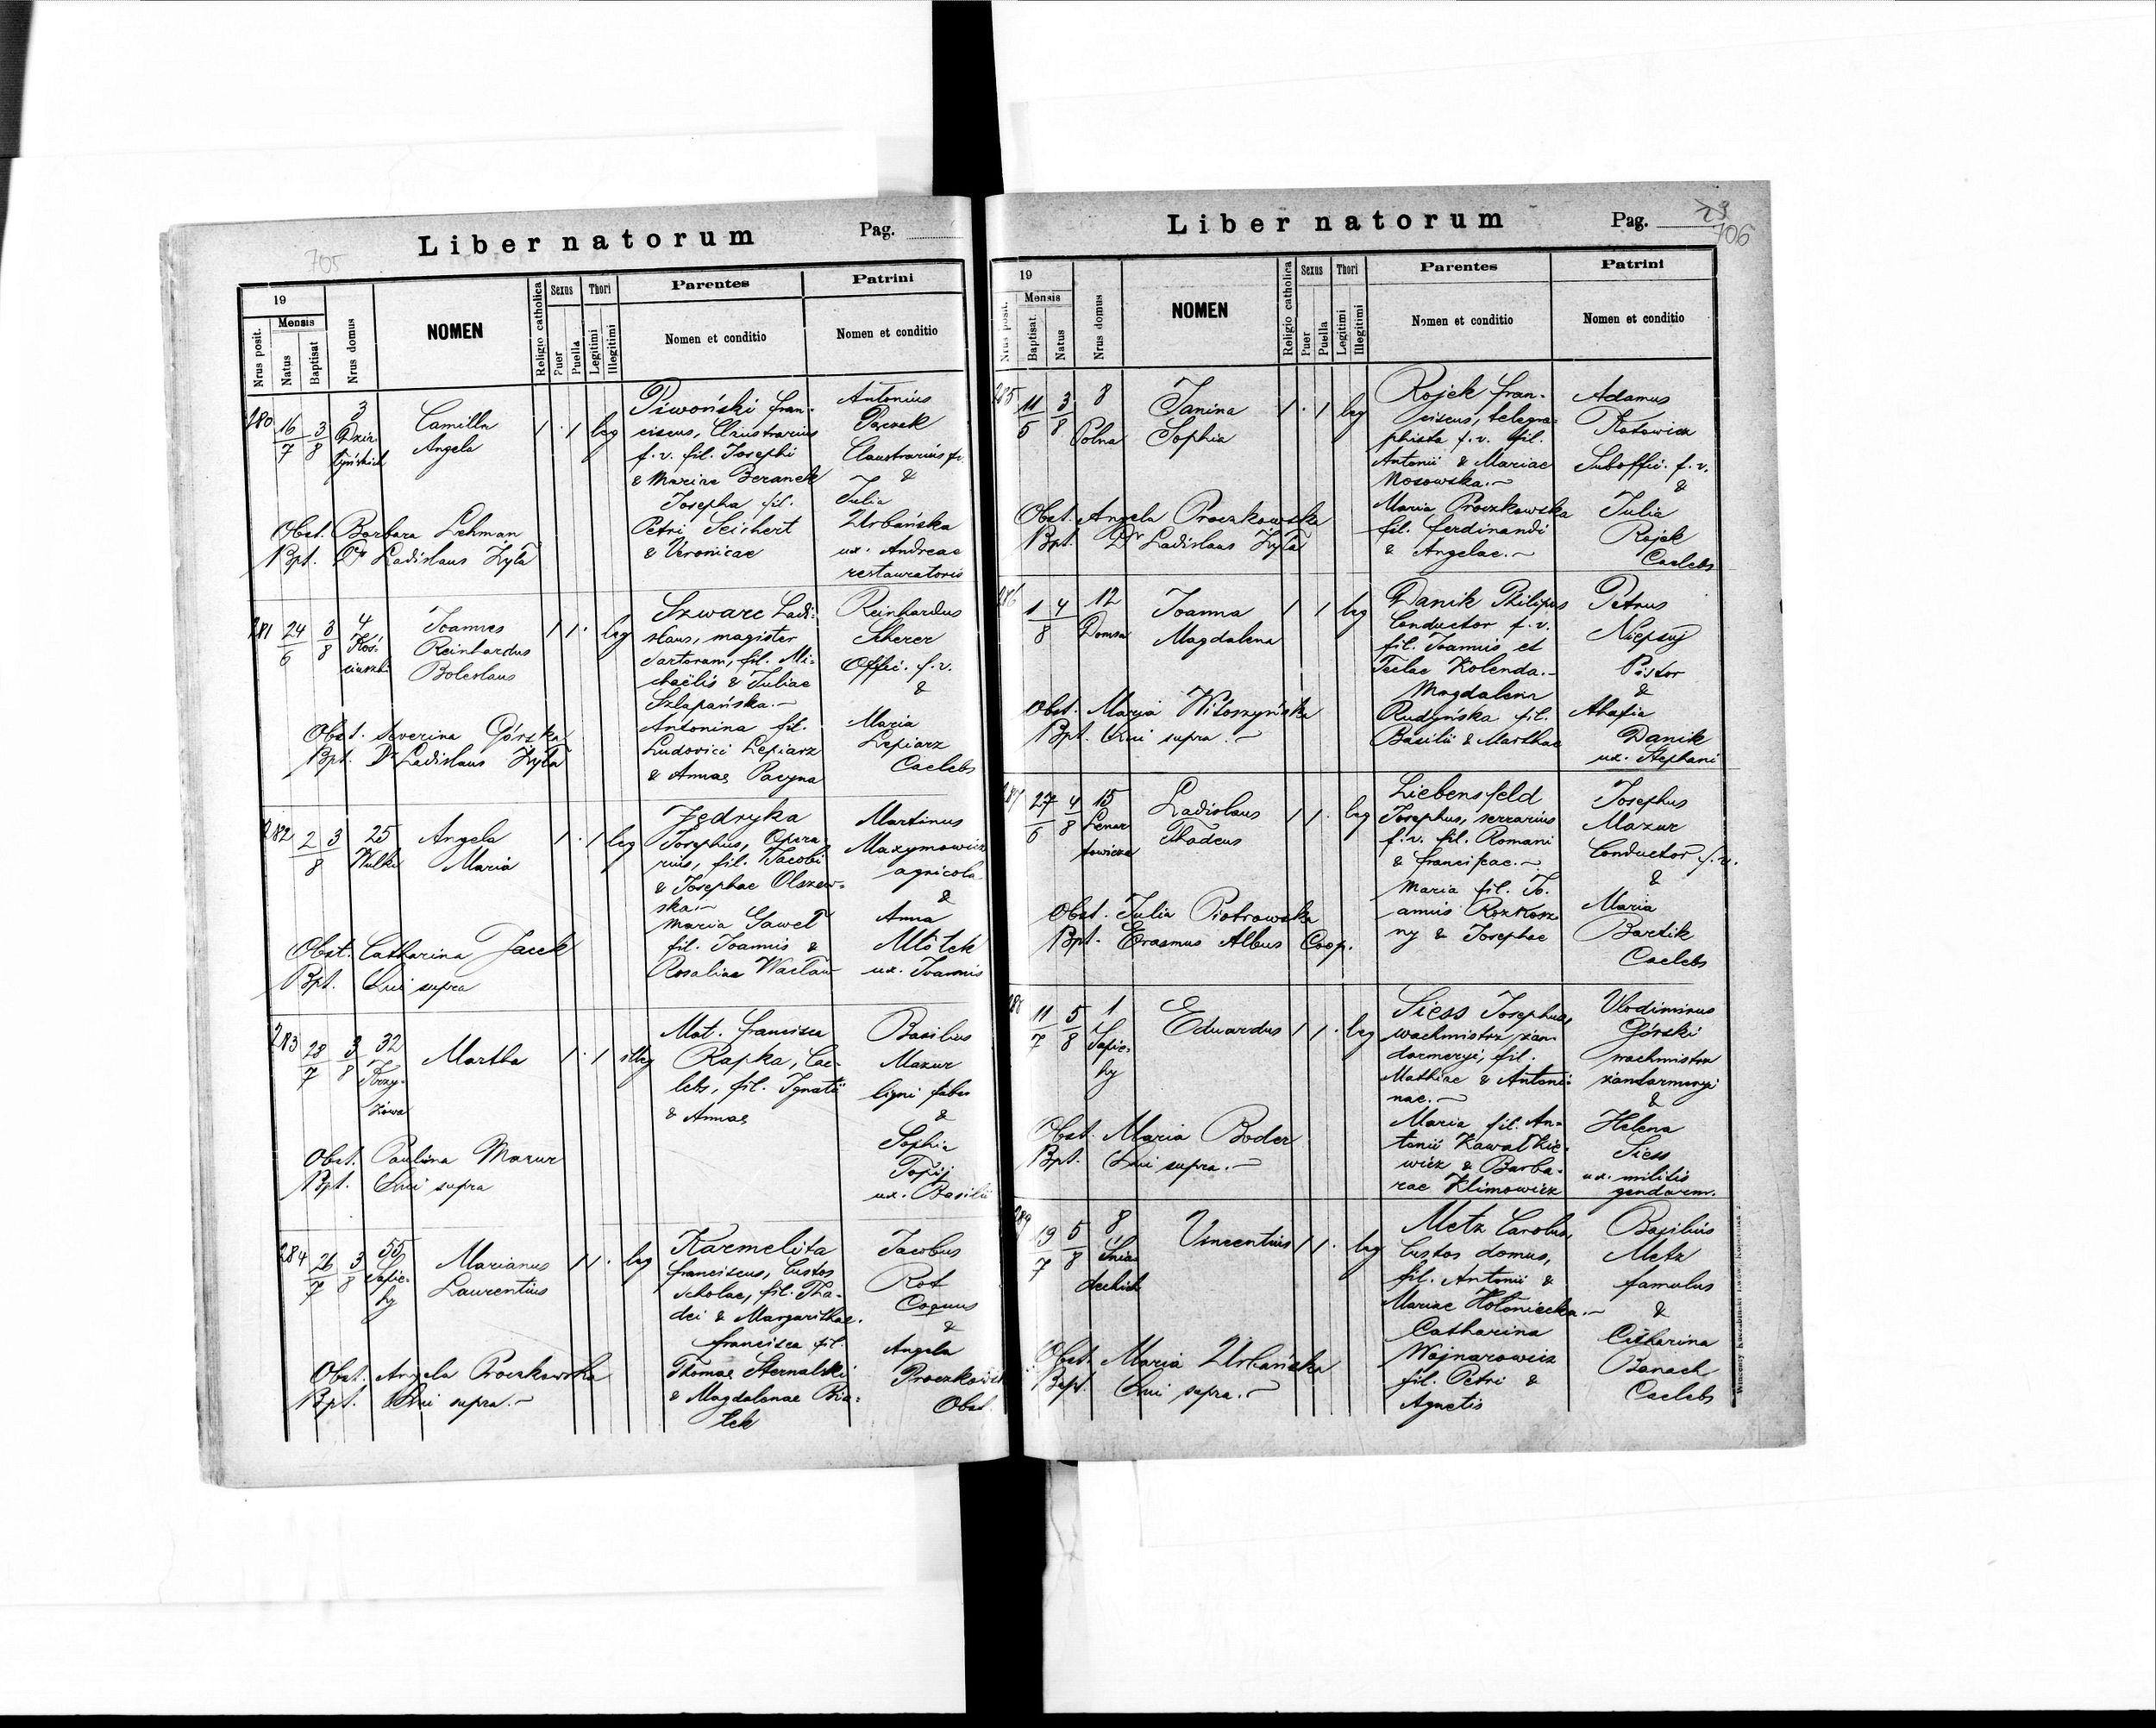 705
Liber natorum
Pag.
19
Mensis
Nrus posit.
Natus
Baptisat
Nrus domus
NOMEN
Religio catholica
Sexus
Puer
Puella
Thori
Legitimi
Illegitimi
Parentes
Nomen et conditio
Patrini
Nomen et conditio
280
16/7
3/8
3
Camilla
Angela
1 · 1 leg
Piwoński Fran-
ciscus, Claustrarius
f.v. fil. Josephi
& Mariae Beranek
Josepha fil.
Petri Seichert
& Veronicae
Antonius
Claustrarius f.v.
&
Julia
Urbańska
ux. Andreae
restauratoris
Obst. Barbara Lehman
Bpt. Dr Ladislaus Żyła
281
24/6
3/8
4
Koś-
ciuszki
Joannes
Reinhardus
Boleslaus
1 1 · leg
Szwarc Ladi-
slaus, magister
sartorum, fil. Mi-
chaëlis & Juliae
Szlapańska.—
Antonina fil.
Ludovici Lepiarz
& Annae Pacyna
Reinhardus
Scherer
Offic. f.v.
&
Maria
Lepiarz
Caelebs
Obst. Severina Górska
Bpt. Dr Ladislaus Żyła
282
2/8
3
25
Wulki
Angela
Maria
1 · 1 leg
Jędryka
Josephus, Opera-
rius, fil. Jacobi
& Josephae Olszew-
ska.—
Maria Gaweł
fil. Joannis &
Rosaliae Wacław
Martinus
Maxymowicz
agricola
&
Anna
Młotek
ux. Joannis
Obst. Catharina Jacek
Bpt. Qui supra
283
28/7
3/8
32
Krzy-
żowa
Martha
1 · 1 illeg
Mat. Francisca
Rapka, Cae-
lebs, fil. Ignatii
& Annae
Basilius
Mazur
ligni faber
&
Sophia
Topij
ux. Basilii
Obst. Paulina Mazur
Bpt. Qui supra
284
26/7
3/8
55
Sapie-
hy
Marianus
Laurentius
1 1 · leg
Karmelita
Franciscus, Custos
scholae, fil. Tha-
dei & Margarithae.
Francisca fil.
Thomae Sternalski
& Magdalenae Bia-
łek
Jacobus
Rot
Coquus
&
Angela
Proczkowska
Obst.
Obst. Angela Proczkowska
Bpt. Qui supra.—
Liber natorum
Pag.
706
19
Mensis
Nrus posit.
Baptisat
Natus
Nrus domus
NOMEN
Religio catholica
Sexus
Puer
Puella
Thori
Legitimi
Illegitimi
Parentes
Nomen et conditio
Patrini
Nomen et conditio
285
11/5
3/8
8
Polna
Janina
Sophia
1 · 1 leg
Rojek Fran-
ciscus, telegra-
phista f.v. fil.
Antonii & Mariae
Nosowska.—
Maria Proczkowska
fil. Ferdinandi
& Angelae.—
Adamus
Katowicz
Suboffic. f.v.
&
Julia
Rojek
Caelebs
Obst. Angela Proczkowska
Bpt. Dr Ladislaus Żyła
286
1/8
4
12
Domsa
Joanna
Magdalena
1 1 leg
Danik Philipus
Conductor f.v.
fil. Joannis et
Teclae Kolenda.—
Magdalena
Rudyńska fil.
Basilii & Marthae
Petrus
Niepsuj
Pistor
&
Ahafia
Danik
ux. Stephani
Obst. Maria Witoszyńska
Bpt. Qui supra.—
287
27/6
4/8
15
Lenar-
towicza
Ladislaus
Thadeus
1 1 · leg
Liebensfeld
Josephus, serrarius
f.v. fil. Romani
& Franciscae.—
Maria fil. Jo-
annis Rozkosz
ny & Josephae
Josephus
Mazur
Conductor f.v.
&
Maria
Bartik
Caelebs
Obst. Julia Piotrowska
Bpt. Erasmus Albus Coop.
288
11/7
5/8
1
Sapie-
hy
Eduardus
1 1 · leg
Siess Josephus,
wachmistrz żan-
darmeryi, fil.
Mathiae & Antoni-
nae.—
Maria fil. An-
tonii Kawałkie-
wicz & Barba-
rae Klimowicz
Vlodimirus
Górski
wachmistrz
żandarmeryi
&
Helena
Siess
ux. militis
gendarm.
Obst. Maria Boder
Bpt. Qui supra.—
289
19/7
5/8
8
Śnia-
deckich
Vincentius
1 1 · leg
Metz Carolus,
Custos domus,
fil. Antonii &
Mariae Hołoniecka.—
Catharina
Wojnarowicz
fil. Petri &
Agnetis
Basilius
Metz
famulus
&
Catharina
Banach
Caelebs
Obst. Maria Urbańska
Bapt. Qui supra.—